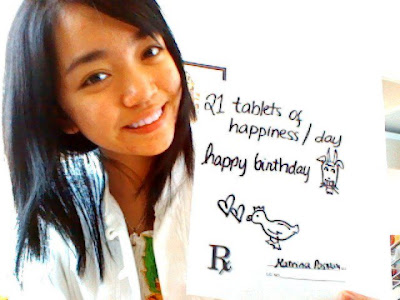 21 tablets of
happiness / day
happy birthday
Katrina
Rx